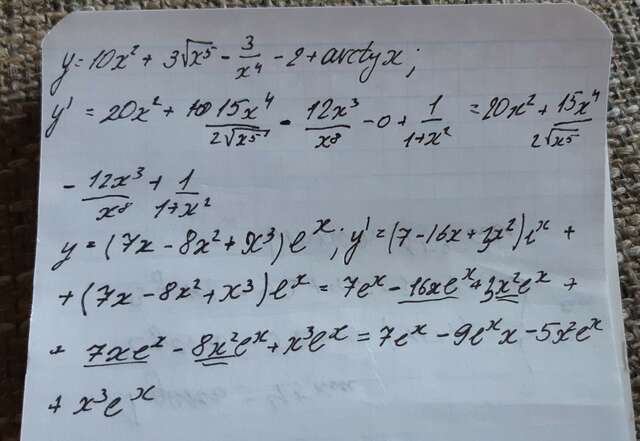 y = 10x² + 3√x⁵ - 3/x⁴ - 2 + arctg x;
y' = 20x² + 15x⁴/2√x⁵ - 12x³/x⁸ - 0 + 1/1+x² = 20x² + 15x⁴/2√x⁵
- 12x³/x⁸ + 1/1+x²
y = (7x - 8x² + x³) eˣ; y' = (7 - 16x + 3x²) eˣ +
+ (7x - 8x² + x³) eˣ = 7eˣ - 16xeˣ + 3x²eˣ +
+ 7xeˣ - 8x²eˣ + x³eˣ = 7eˣ - 9eˣx - 5x²eˣ
+ x³eˣ